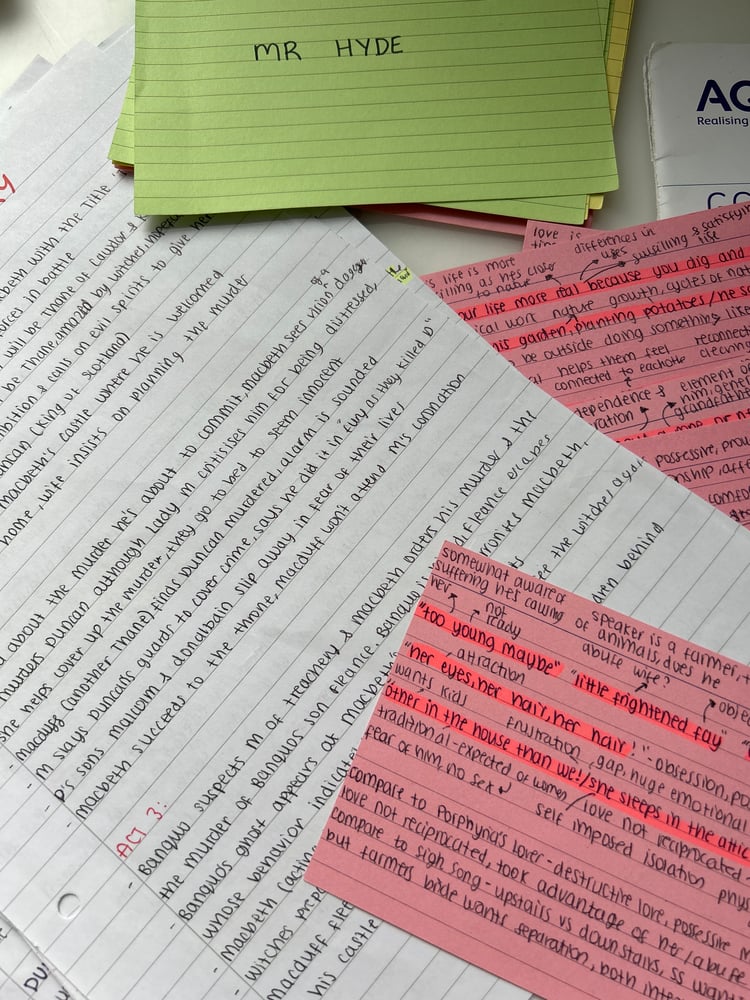 MR HYDE
AQ
Realising
beth with the title
orces in battle
will be Thane of Cawdor &
be Thane, amazed by witches,
mbition & calls on evil spirits to give her
uncan (King of Scotland)
Macbeth's castle where he is welcomed
home, wife insists on planning the murder
about the murder he's about to commit, macbeth sees vision of a dagger
murders Duncan although Lady M critisises him for being distressed,
she helps cover up the murder, they go to bed to seem innocent
macduff (another Thane) finds Duncan murdered, alarm is sounded
M slays Duncan's guards to cover crime, says he did it in "fury as they killed D"
D's sons malcolm & donalbain slip away in fear of their lives
macbeth succeeds to the throne, macduff won't attend his coronation
ACT 3:
- Banquo suspects M of treachery & macbeth orders his murder & the
the murder of Banquos son fleance, Banquo i d fleance escapes
- Banquos ghost appears at macbeth
whose behavior indicate
- macbeth
witches
ee the witches again
macduff flee
dren behind
his castle
love is
differences in
& satisfyin
s life is most
uses
swelling
list
illing as hes closer
to nature
our life more real because you dig and
ical work nature growth, cycles of nat
is garden, planting potatoes/he so
be outside doing something, like
helps them feel
reconnec
connected to eachother
cleaning
dependence &
element of
ration
him, gene
grandfathe
possessive, prou
onship, affe
comfo
somewhat aware of
suffering hes causing
her
not
ready
speaker is a farmer, t
of animals, does he
abuse wife?
"too young maybe" "little frightened fay"
attraction
obje
"her eyes, her hair, her hair!" - obsession, po
wants kids
frustration, gap, huge emotional
"other in the house than we!/she sleeps in the attic
traditional - expected of women
love not reciprocated -
fear of him, no sex
self imposed isolation phys
compare to Porphyria's lover - destructive love, possessive m
love not reciprocated, took advantage of her/abuse
compare to sigh song - upstairs vs downstairs, ss wan
but farmers bride wants separation, both inte